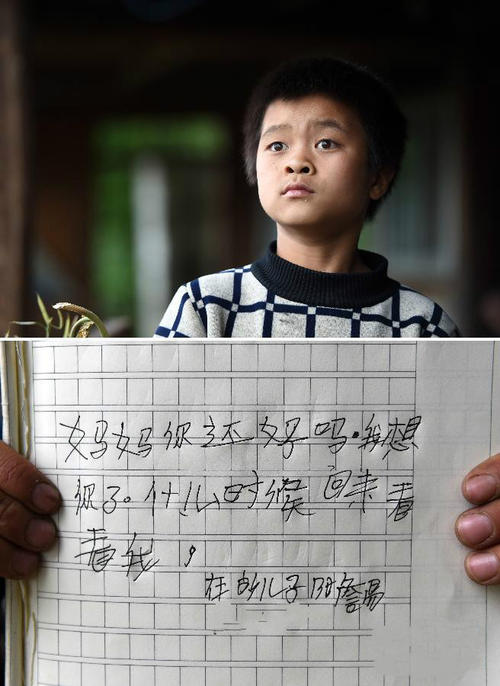 妈妈你还好吗.我想
你了.什么时候回来看
看我,
在的儿子